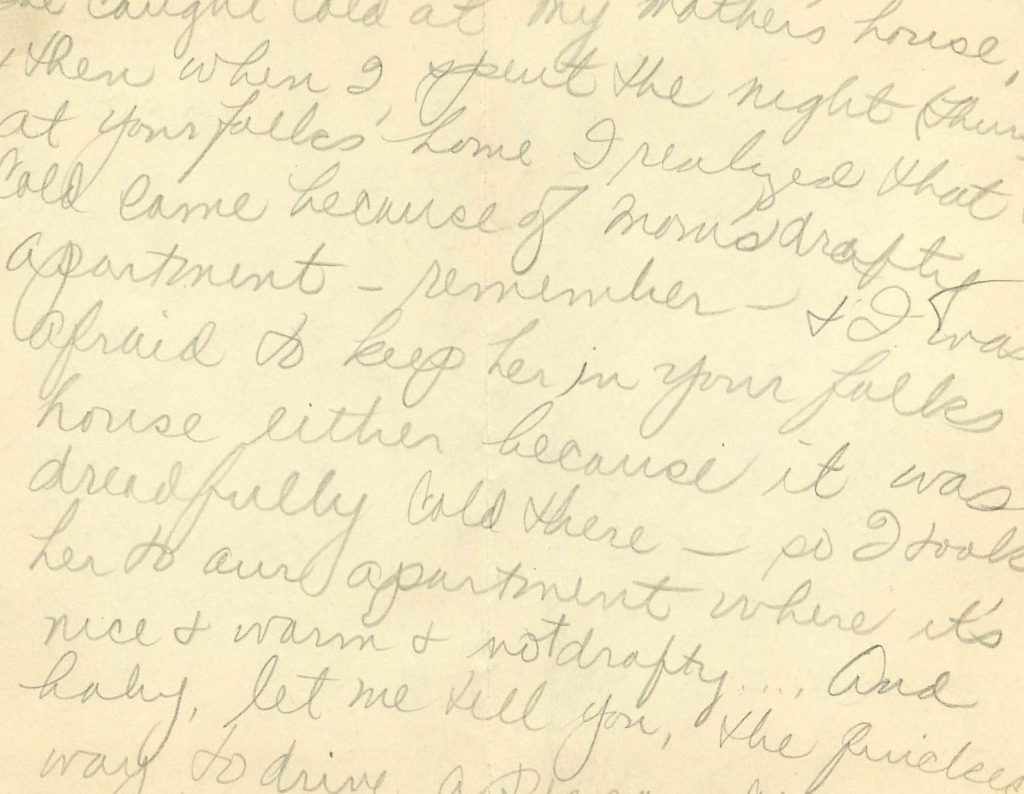 caught cold at my mother's house,
& then when I spent the night (Thurs
at your folks' home I realized that
Cold came because of Mom's drafty
apartment – remember – & I was
afraid to keep her in your folks
house either because it was
dreadfully cold there – so I took
her to aure apartment where it's
nice & warm & not drafty.... And
baby, let me tell you, the quickes
way to drive a